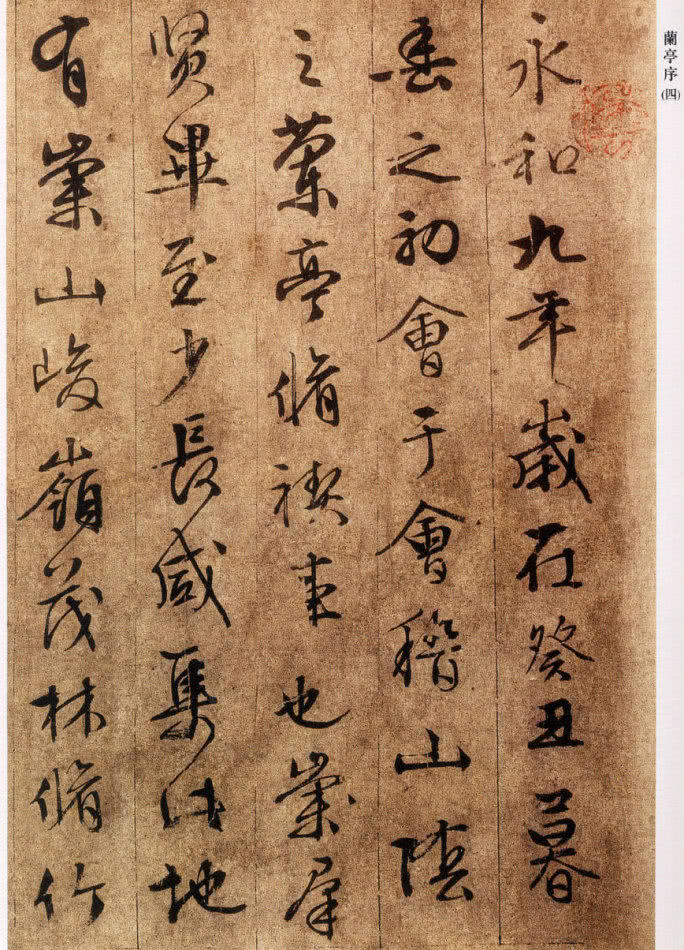 蘭亭序
(四)
永和九年歲在癸丑暮
春之初會于會稽山陰
之蘭亭脩禊事也羣
賢畢至少長咸集此地
有崇山峻嶺茂林脩竹